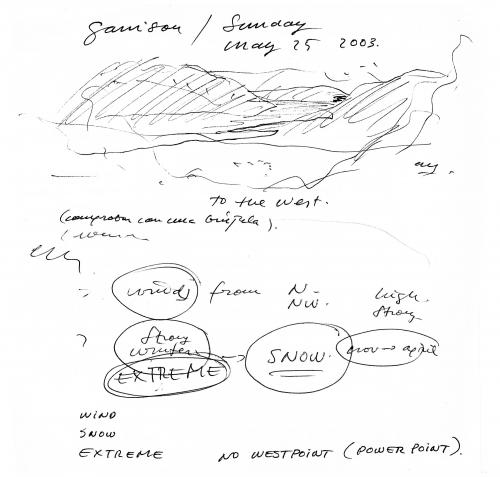 Garrison / Sunday
May 25 2003.
to the west.
(comprobar con una brújula).
winds from N-
NW.
high.
strong
strong
winters
EXTREME
SNOW.
nov → april
WIND
SNOW
EXTREME NO WESTPOINT (POWER POINT).